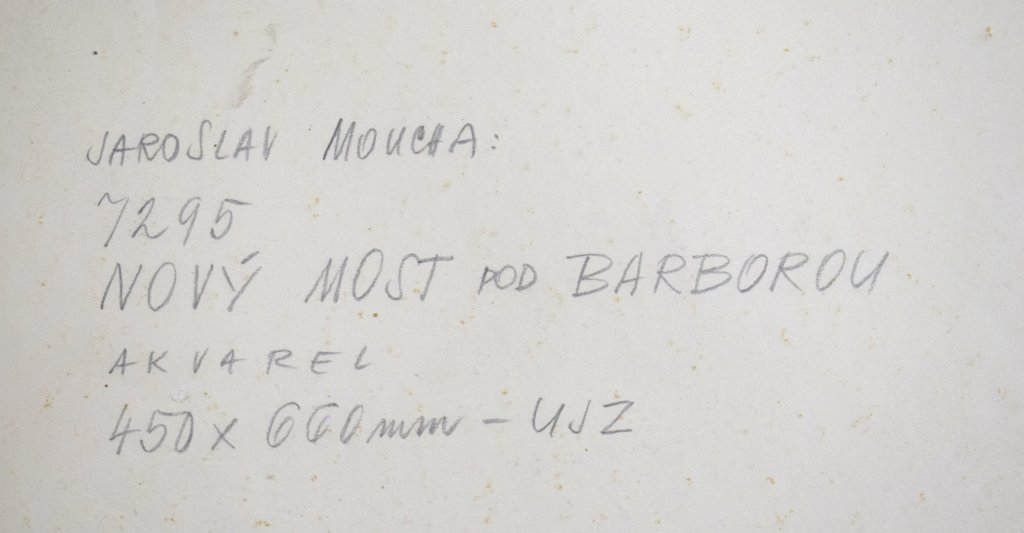 JAROSLAV MOUCHA:
7295
NOVÝ MOST POD BARBOROU
AKVAREL
450 x 660 mm - UJZ